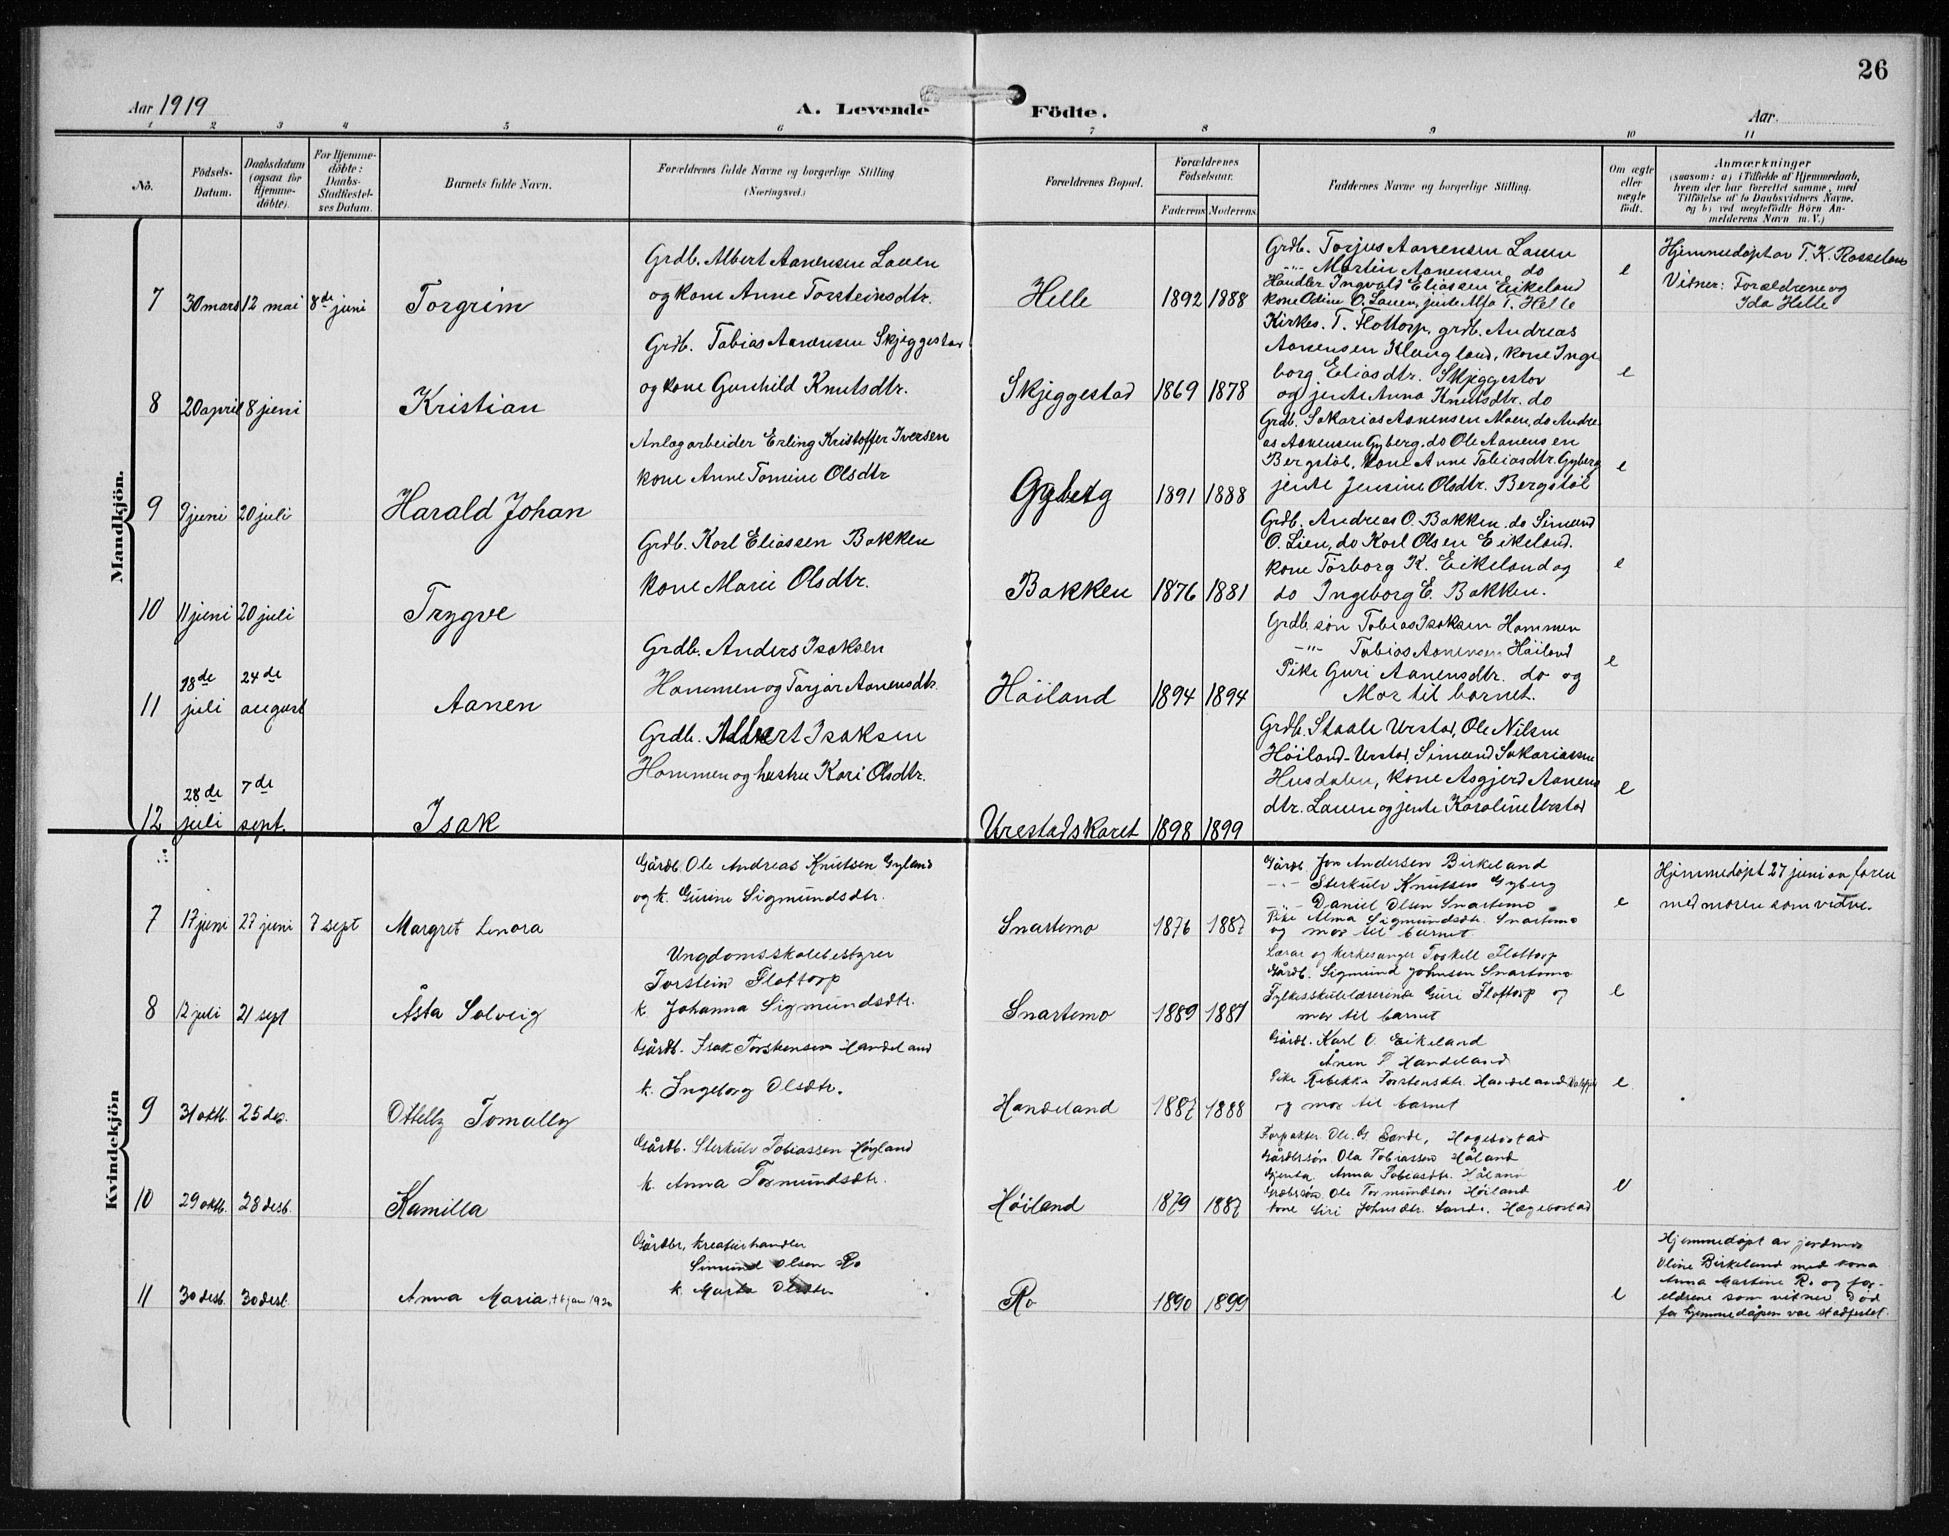 26
Aar 1919
A. Levende
Födte.
Aar.
1 2 3 4 5 6 7 8 9 10 11
No.
Födsels-Datum.
Daabsdatum (ogsaa for Hjemme-döbte).
For Hjemme-döbte: Daabs-Stadfæstel-ses Datum.
Barnets fulde Navn.
Forældrenes fulde Navne og borgerlige Stilling
(Næringsvei.)
Forældrenes Bopæl.
Forældrenes Födselsaar.
Faderens
Moderens
Faddernes Navne og borgerlige Stilling.
Om ægte eller uægte födt.
Anmærkninger
(saasom: a) i Tilfælde af Hjemmedaab,
hvem der har forrettet samme, med
Tilföielse af to Daabsvidners Navne.
og b) ved uægtefödte Börn An-
melderens Navn m. V.)
Mandkjön.
7 30 mars 12 mai 8de juni Torgrim
Grdb. Albert Aanensen Lauen
og kone Anne Torsteinsdtr.
Helle 1892 1888
Grdb. Torjus Aanensen Lauen
-"- Martin Aanensen do
Handler Ingvald Eliassen Eikeland
kone Odine O. Lauen, jente Alfa T. Helle
e
Hjemmedøpt av T. K.
Vitner: Forældrene og
Ida Helle
8 20 april 8 juni Kristian
Grdb. Tobias Aanensen Skjeggestad
og kone Gunhild Knutsdtr.
Skjeggestad 1869 1878
Kirkes. T. Flottorp, grdb. Andreas
Aanensen Klungland, kone Inge
borg Eliasdtr. Skjeggestad
og jente Anna Knutsdtr. do
e
9 9 juni 20 juli Harald Johan
Anlagarbeider Erling Kristoffer Iversen
kone Anne Tomine Olsdtr
Gyberg 1891 1888
Grdb. Sakarias Aanensen Moen, do Andre-
as Aanensen Gyberg, do Ole Aanensen
Bergstöl, kone Anne Tobiasdtr. Gyberg
jente Jensine Olsdtr. Bergstöl
e
10 11 juni 20 juli Trygve
Grdb. Karl Eliassen Bakken
kone Marie Olsdtr.
Bakken 1876 1881
Grdb. Andreas O. Bakken, do Simund
O. Lien, do Karl Olsen Eikeland.
kone Torborg K. Eikeland og
do Ingeborg E. Bakken.
e
11 18de juli 24de august Aanen
Grdb. Anders Isaksen
Hammen og Torjør Aanensdtr.
Höiland 1894 1894
Grdb. søn Tobias Isaksen Hammen
-"- Tobias Aanensen Höiland
Pike Guri Aanensdtr. do og
Mor til barnet.
e
12 28de juli 7de sept. Isak
Grdb. Albert Isaksen
Hammen og hustru Kari Olsdtr.
Urestadskaret 1898 1899
Grdb. Staale Urstad, Ole Nilsen
Höiland-Urstad, Simund Sakariassen
Husdalen, kone Asgjerd Aanens
dtr. Lauen og jente Karoline Urstad
e
Kvindekjön
7 17 juni 27 juni 7 sept Margret Lenora
Gårdb. Ole Andreas Knutsen Gyland
og k. Gurine Sigmundsdtr.
Snartemo 1876 1887
Gårdb. Jon Andersen Birkeland
-"- Sterkulv Knutsen Gyberg
-"- Daniel Olsen Snartemo
Pike Alma Sigmundsdtr. Snartemo
og mor til barnet
e
Hjemmedøpt 27 juni av faren
med moren som vidne.
8 12 juli 21 sept Åsta Solveig
Ungdomsskolebestyrer
Torstein Flottorp
k. Johanna Sigmundsdtr.
Snartemo 1889 1881
Lærar og kirkesanger Torkell Flottorp
Gårdb. Sigmund Johnsen Snartemo
Fylkesskulelærerinde Guri Flottorp og
mor til barnet
e
9 31 oktb. 25 des. Ottelly Tomally
Gårdb. Isak Torstensen Handeland
k. Ingeborg Olsdtr.
Handeland 1887 1888
Gårdb. Karl O. Eikeland
Ånen T Handeland
Pike Rebekka Torstensdtr. Handeland
og mor til barnet
e
10 29 oktb. 28 desb. Kamilla
Gårdb. Sterkulv Tobiassen Høyland
k. Anna Tormundsdtr.
Høiland 1879 1887
Forpakter Ole G. Sande, Hægebostad
Gårdbrsøn Ola Tobiassen Håland
Gjenta Anna Tobiasdtr. Håland
Grdbrsøn Ole Tormundsen Høiland
kone Siri Johnsdtr. Sande, Hægebostad
e
11 30 desb. 30 desb. Anna Maria † 6 jan 1920
Gårdbr, kreaturhandler
Simund Olsen Ro
k. Marta Olsdtr
Ro 1890 1899
e
Hjemmedøpt av jordmor
Oline Birkeland med kona
Anna Martine Ro og for-
eldrene som vitner. Død
før hjemmedåpen var stadfestet.